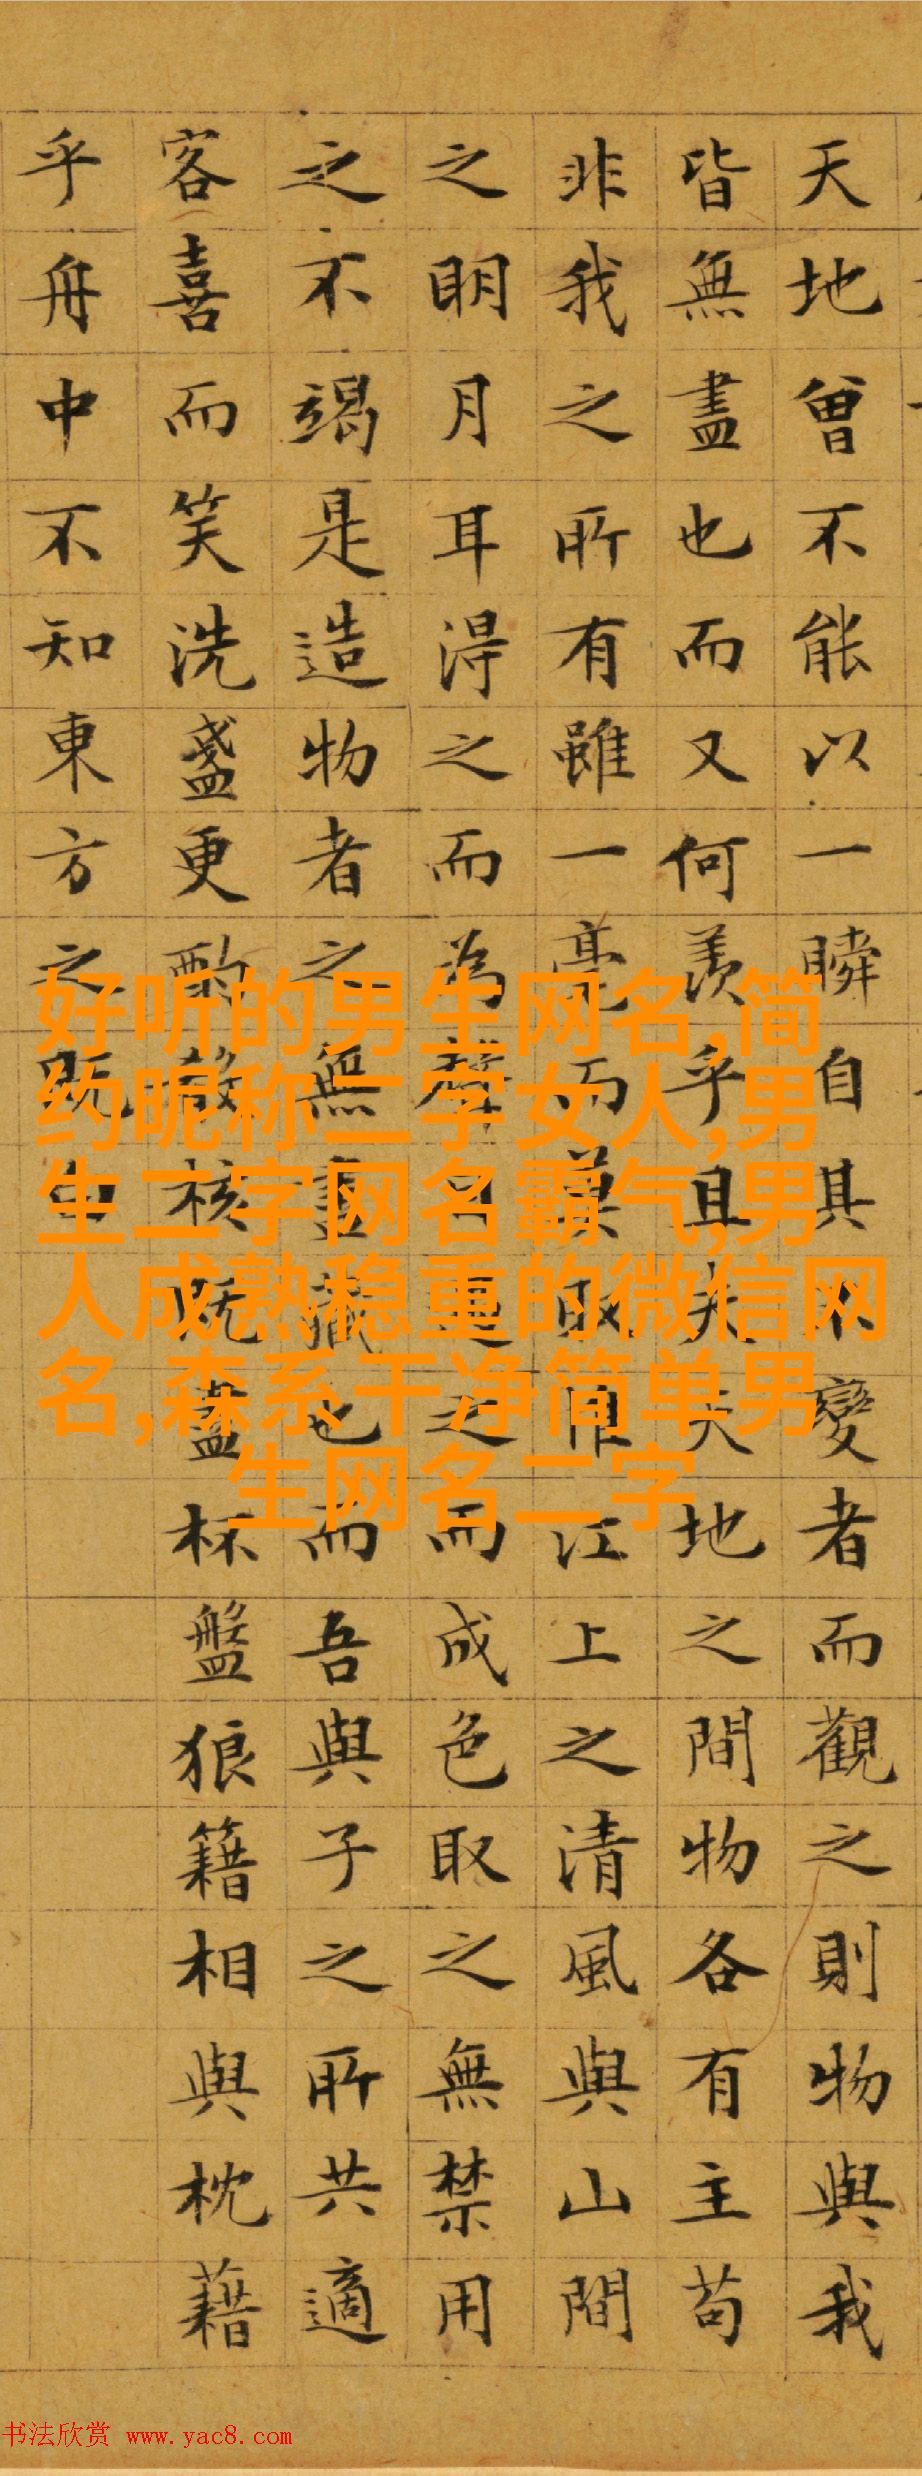 天地曾不能以一瞬自其不變者而觀之則物與我
皆無盡也而又何羨乎且夫天地之間物各有主苟
非我之所有雖一毫而莫取惟江上之清風與山間
之明月耳得之而為聲目遇之而成色取之無禁用
之不竭是造物者之無盡藏也而吾與子之所共適
客喜而笑洗盞更酌殽核既盡杯盤狼籍相與枕藉
乎舟中不知東方之既白
好听的男生网名,简
约昵称二字女人,男
生二字网名霸气,男
人成熟稳重的微信网
名,森系干净简单男
生网名二字
书法欣赏 www.yac8.com